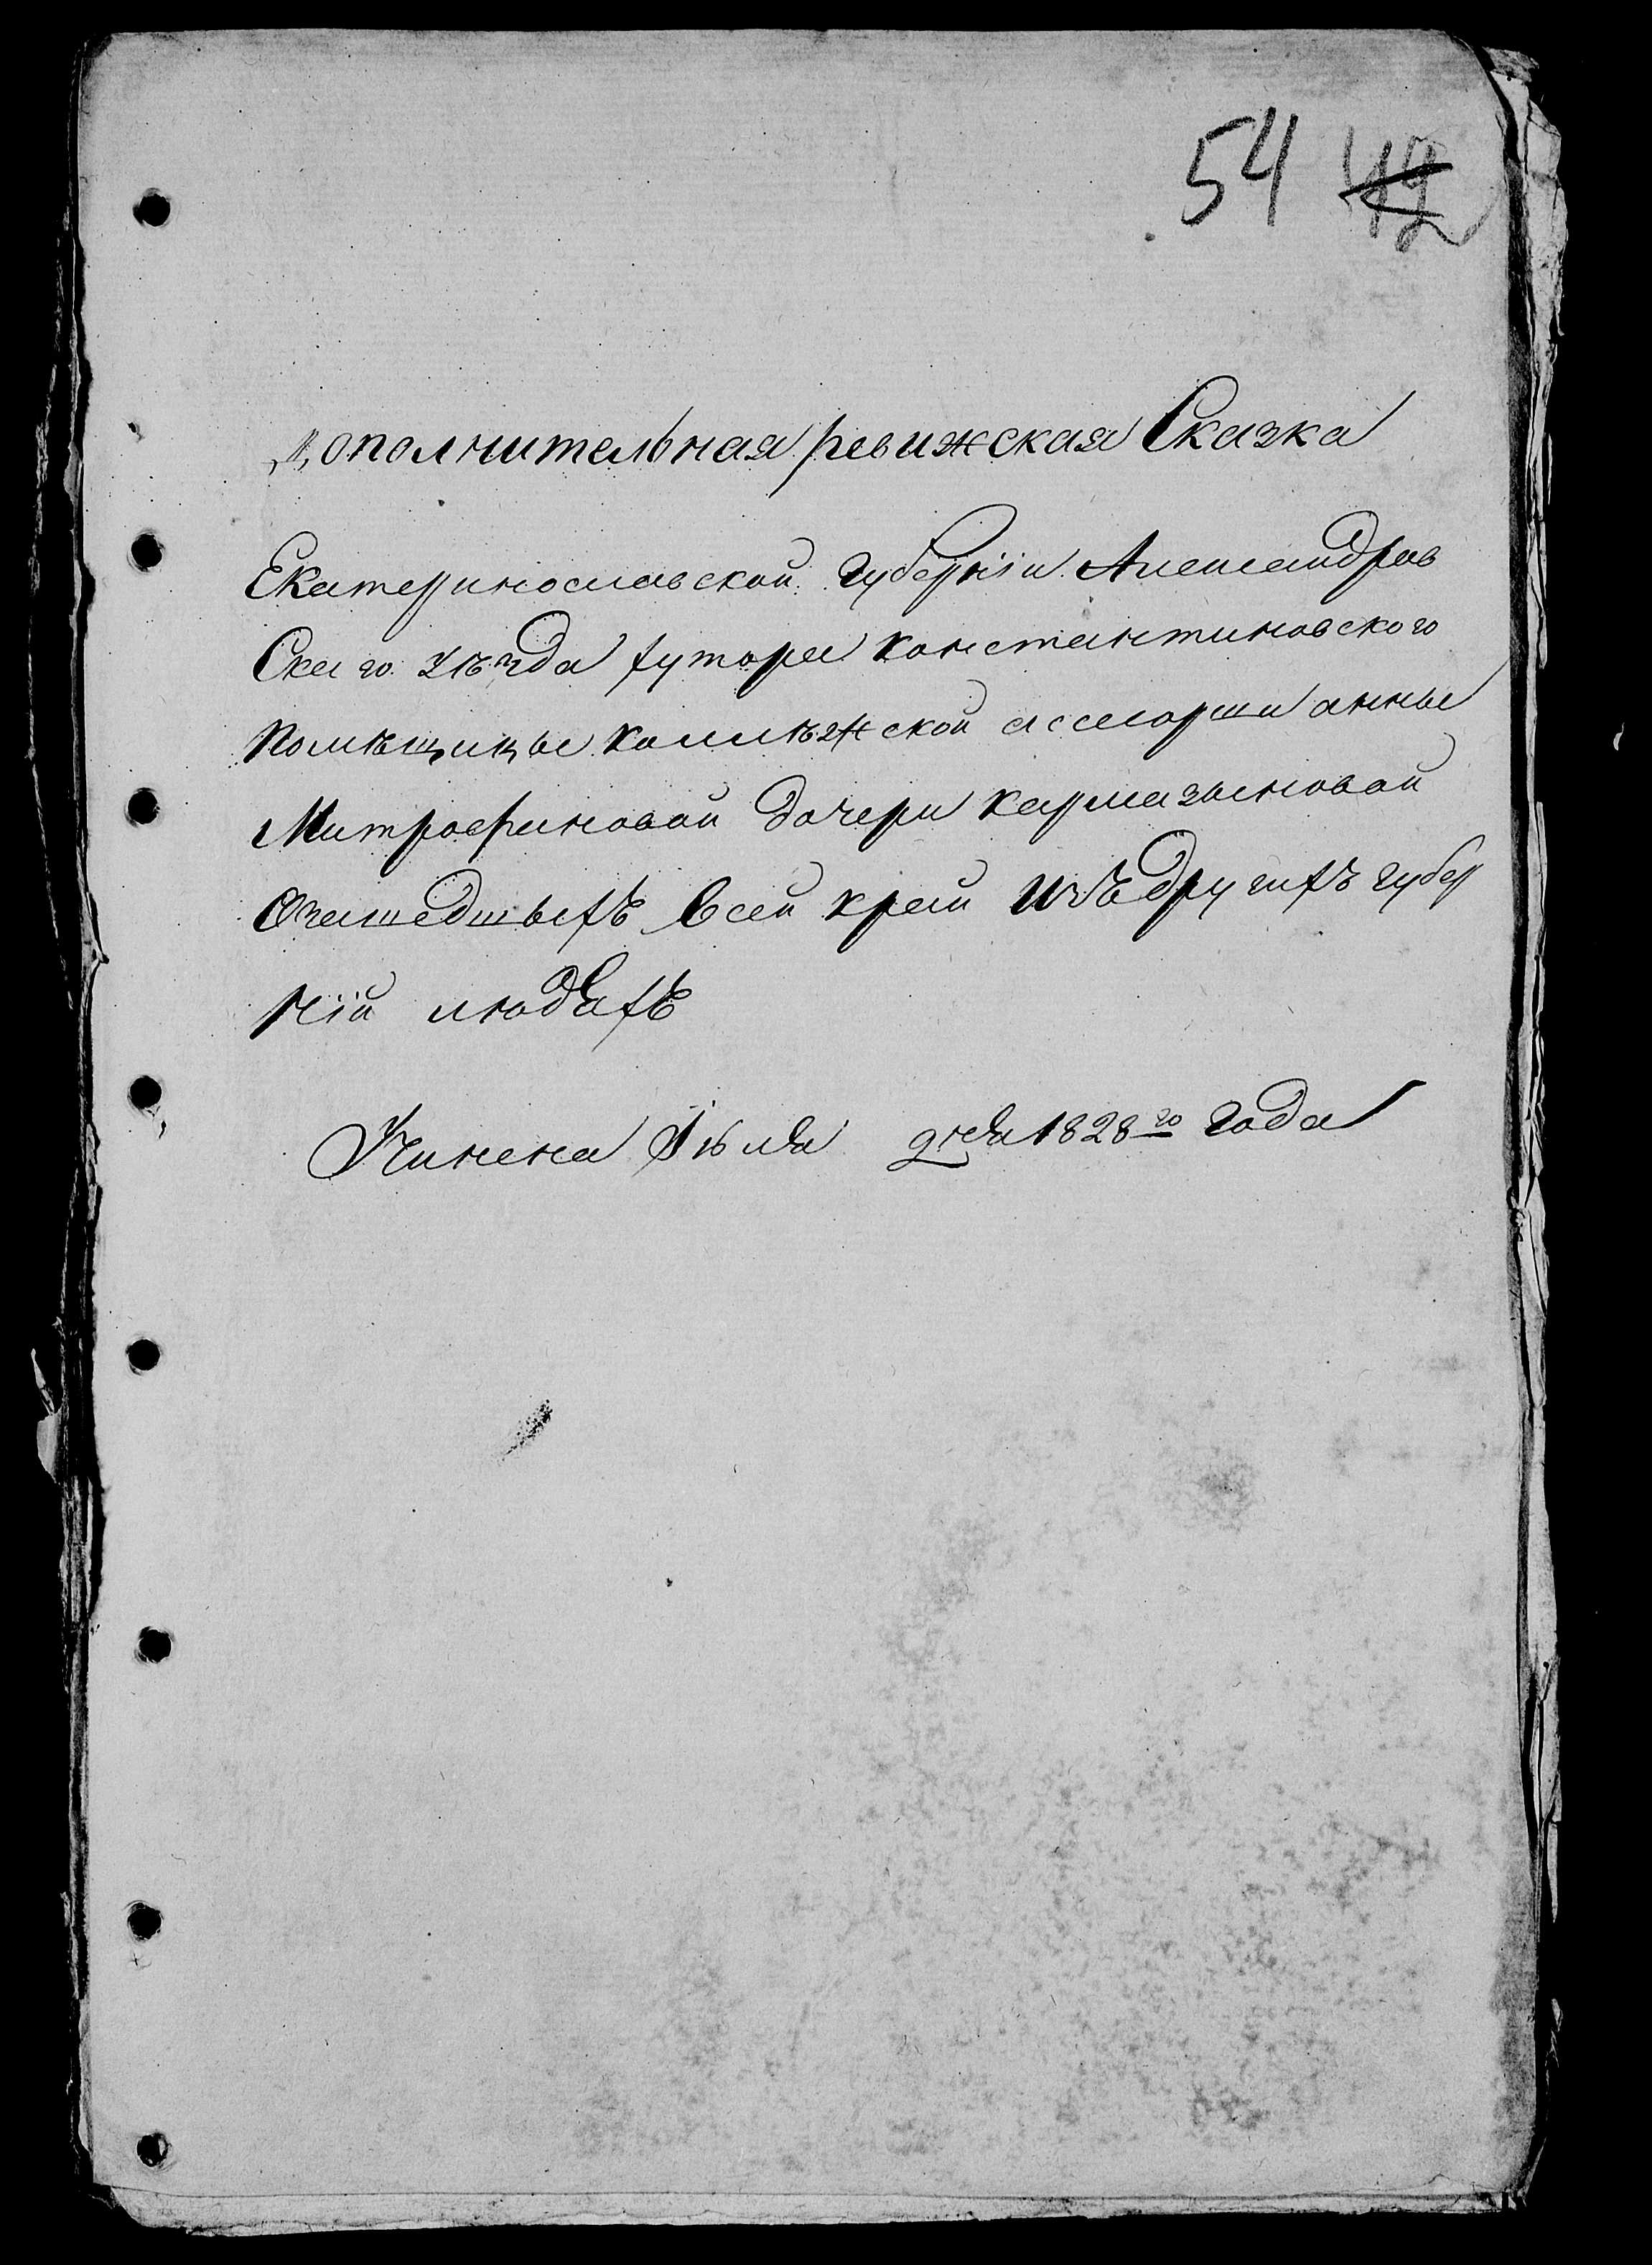 54
Дополнительная ревижская Сказка
Екатеринославской губерніи Александров
Скаго уѣзда хутора константиновского
помѣщицы коллѣжской ассесорши анны
Митрофановой дочери кармазиновой
Озашедшыхъ Всей край Изъ других губер
ній людехъ
Учинена Іюля дня 1828го года